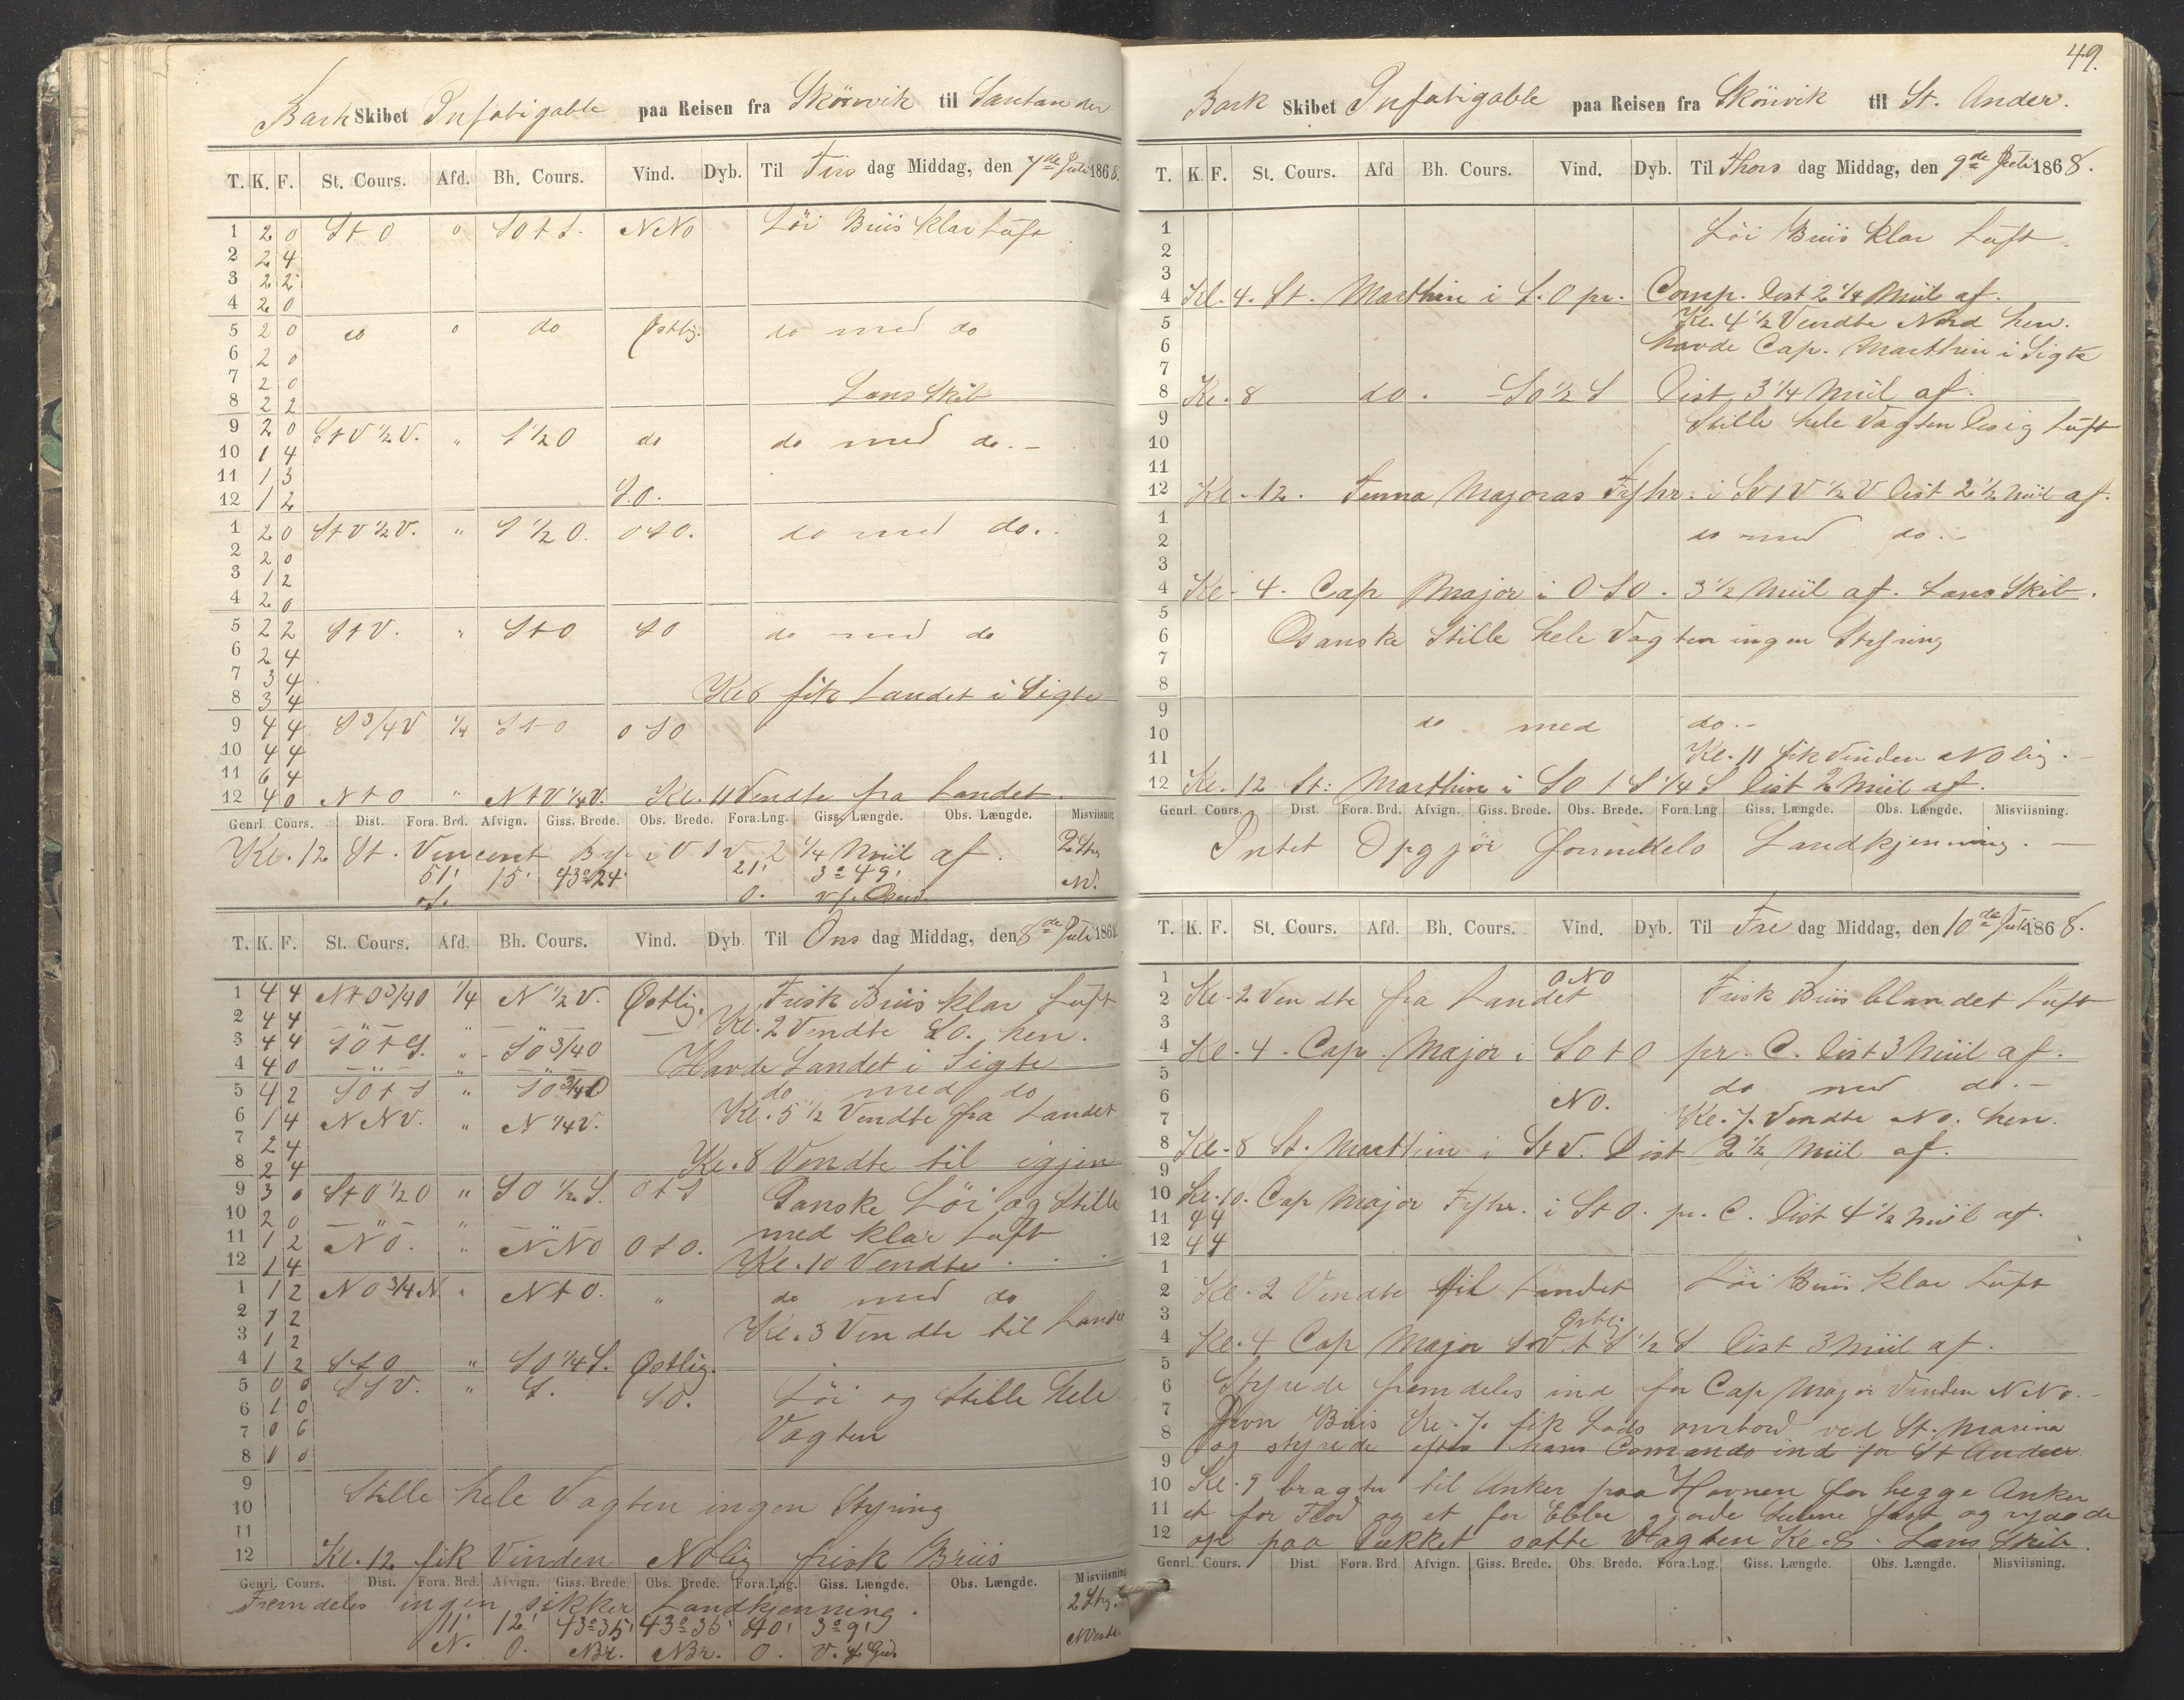 Bark Skibet Infatigable paa Reisen fra Skönvik til Santander
T. K. F. St. Cours. Afd. Bh. Cours. Vind. Dyb. Til Tirs dag Middag, den 7de Juli 1868.
1 2 0 St O " SO t S. NNO Löi Briis klar Luft
2 2 4
3 2 2
4 2 0
5 2 0 do " do Östlig. do med do
6 2 0
7 2 0
8 2 2 Lens Skib
9 2 0 StV ½ V. " S ½ O do do med do.-
10 1 4
11 1 3
12 1 2 S.O.
1 2 0 StV ½ V. " S ½ O. OSO. do med do.
2 2 0
3 1 2
4 2 0
5 2 2 StV. " StO SO do med do
6 2 4
7 3 4
8 3 4 Kl 8 fik Landet i Sigte
9 4 4 S ¾ V ¼ StO OSO
10 4 4
11 6 4
12 4 0 NtO " NtV ¼ V. Kl. 11 Vendte fra Landet.
Genrl. Cours. Dist. Fora. Brd. Afvign. Giss. Brede. Obs. Brede. Fora.Lng. Giss. Længde. Obs. Længde. Misviisning
Kl. 12 St. Vincent By i VtV 2 ¼ Miil af. 2 Str
51' 15' 43°24' 21' 3°49' NV.
T. K. F. St. Cours. Afd. Bh. Cours. Vind. Dyb. Til Ons dag Middag, den 8de Juli 1868.
1 4 4 NtO ¾ O ¼ N ½ V. Östlig. Frisk Briis klar Luft
2 4 4 Kl. 2 Vendte SO. hen.
3 4 4 SO t S. " SO ¾ O
4 4 0 Havde Landet i Sigte
5 4 2 SO t S " SO ¾ O do med do
6 1 4 NNV. " N ¼ V. Kl. 5 ½ Vendte fra Landet
7 2 4
8 2 4 Kl. 8 Vendte til igjen
9 3 0 StO ½ O " SO ½ S. OtS Ganske Löi og Stille
10 2 0 med klar Luft
11 1 2 NO. " NNO OSO.
12 1 4 Kl. 10 Vendte.
1 1 2 NO ¾ N. " NtO. " do med do
2 1 2
3 1 2 Kl. 3 Vendte til Landet
4 1 2 StO " SO ¼ S. Östlig.
5 0 0 SSV. " S. SO. Löi og Stille hele
6 1 0
7 0 6 Vagten
8 0 0
9 Stille hele Vagten ingen Styring
10
11
12 Kl. 12 fik Vinden NOlig frisk Briis
Genrl. Cours. Dist. Fora. Brd. Afvign. Giss. Brede. Obs. Brede. Fora.Lng. Giss. Længde. Obs. Længde. Misviisning
Fremdeles ingen sikker Landkjenning. 2 Str.
11' 12' 43°35' 43°35' 40' 3°9'
N. O. NBr. NBr. O. V. f. Gr.
49.
Bark Skibet Infatigable paa Reisen fra Skönvik til St. Ander.
T. K. F. St. Cours. Afd Bh. Cours. Vind. Dyb. Til Thors dag Middag, den 9de Juli 1868.
1 Löi Briis klar Luft.
2
3
4 Kl. 4. St. Marthin i S.O pr. Comp. Dist 2 ¼ Miil af.
5 Kl. 4 ½ Vendte Nord hen.
6 havde Cap. Marthin i Sigte
7
8 Kl. 8 do. SO ½ S Dist 3 ¼ Miil af.
9 Stille hele Vagten Disig Luft
10
11
12 Kl. 12. Majoras Fyhr. i SVtV ½ V Dist 2 ½ Miil af.
1
2 do med do.-
3
4 Kl. 4. Cap Major i OSO. 3 ½ Miil af. Lens Skib.
5
6 Ganske Stille hele Vagten ingen Styring
7
8
9 do med do.-
10
11 Kl. 11 fik Vinden NOlig.-
12 Kl. 12 St: Marthin i SO t S ¼ S Dist 2 Miil af.
Genrl. Cours. Dist. Fora. Brd. Afvign. Giss. Brede. Obs. Brede. Fora.Lng. Giss. Længde. Obs. Længde. Misviisning.
Intet Opgjör formedels Landkjenning.-
T. K. F. St. Cours. Afd. Bh. Cours. Vind. Dyb. Til Fre dag Middag, den 10de Juli 1868.
1 ONO
2 Kl. 2 Vendte fra Landet Frisk Briis blandet Luft
3
4 Kl. 4. Cap. Major i SO t O pr. C. Dist 3 Miil af.
5 do med do.-
6 NO.
7 Kl. 7. Vendte NO. hen.
8 Kl. 8 St. Marthin i StV. Dist 2 ½ Miil af.
9
10 Kl. 10. Cap Major Fyhr. i StO. pr. C. Dist 4 ½ Miil af.
11 4 4
12 4 4
1
2 Kl. 2 Vendte til Landet Löi Briis klar Luft
3 Östlig
4 Kl. 4 Cap Major SV t S ½ S Dist 3 Miil af.
5
6 Styrede fremdeles ind for Cap Major Vinden NNO.-
7 Jevn Briis Kl. 7. fik Lods ombord ved St. Marina
8 og styrede efter hans Comando ind for St Ander.
9
10 Kl. 9 bragte til Anker paa Havnen for begge Anker
11 et for Flod og et for Ebbe gjorde Seilene fast og ryddede
12 op paa Dækket satte Vagten Kl. 8. Lens Skib.
Genrl. Cours. Dist. Fora. Brd. Afvign. Giss. Brede. Obs. Brede. Fora.Lng. Giss. Længde. Obs. Længde. Misviisning.